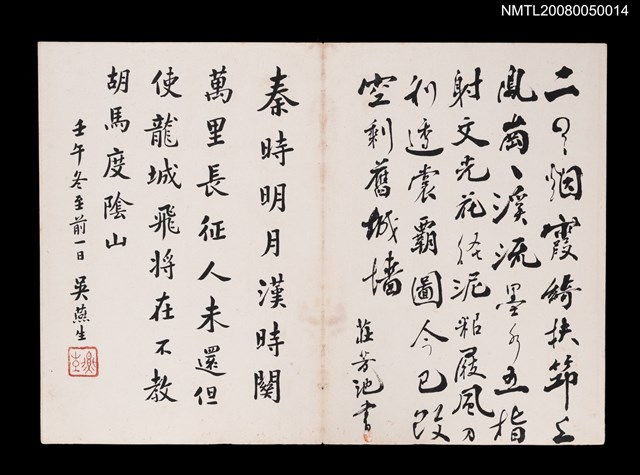 NMTL20080050014
二月烟霞綺扶筇上
鳳崗、溪流墨水五指
射文光花経泥粘屐風刀
利透裳霸圖今已改
空剩舊城墻
莊芳池書
秦時明月漢時關
萬里長征人未還但
使龍城飛將在不教
胡馬度陰山
壬午冬至前一日 吳燕生